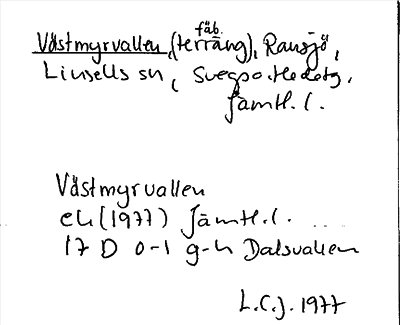 fäb.
Västmyrvallen, (terräng), Ransjö,
Linsells sn, Svegpo. Hedebg,
Jämtl. l.
Västmyrvallen
ek (1977) Jämtl. l.
17 D 0-1 g-h Dalsvallen
L.C.J. 1977